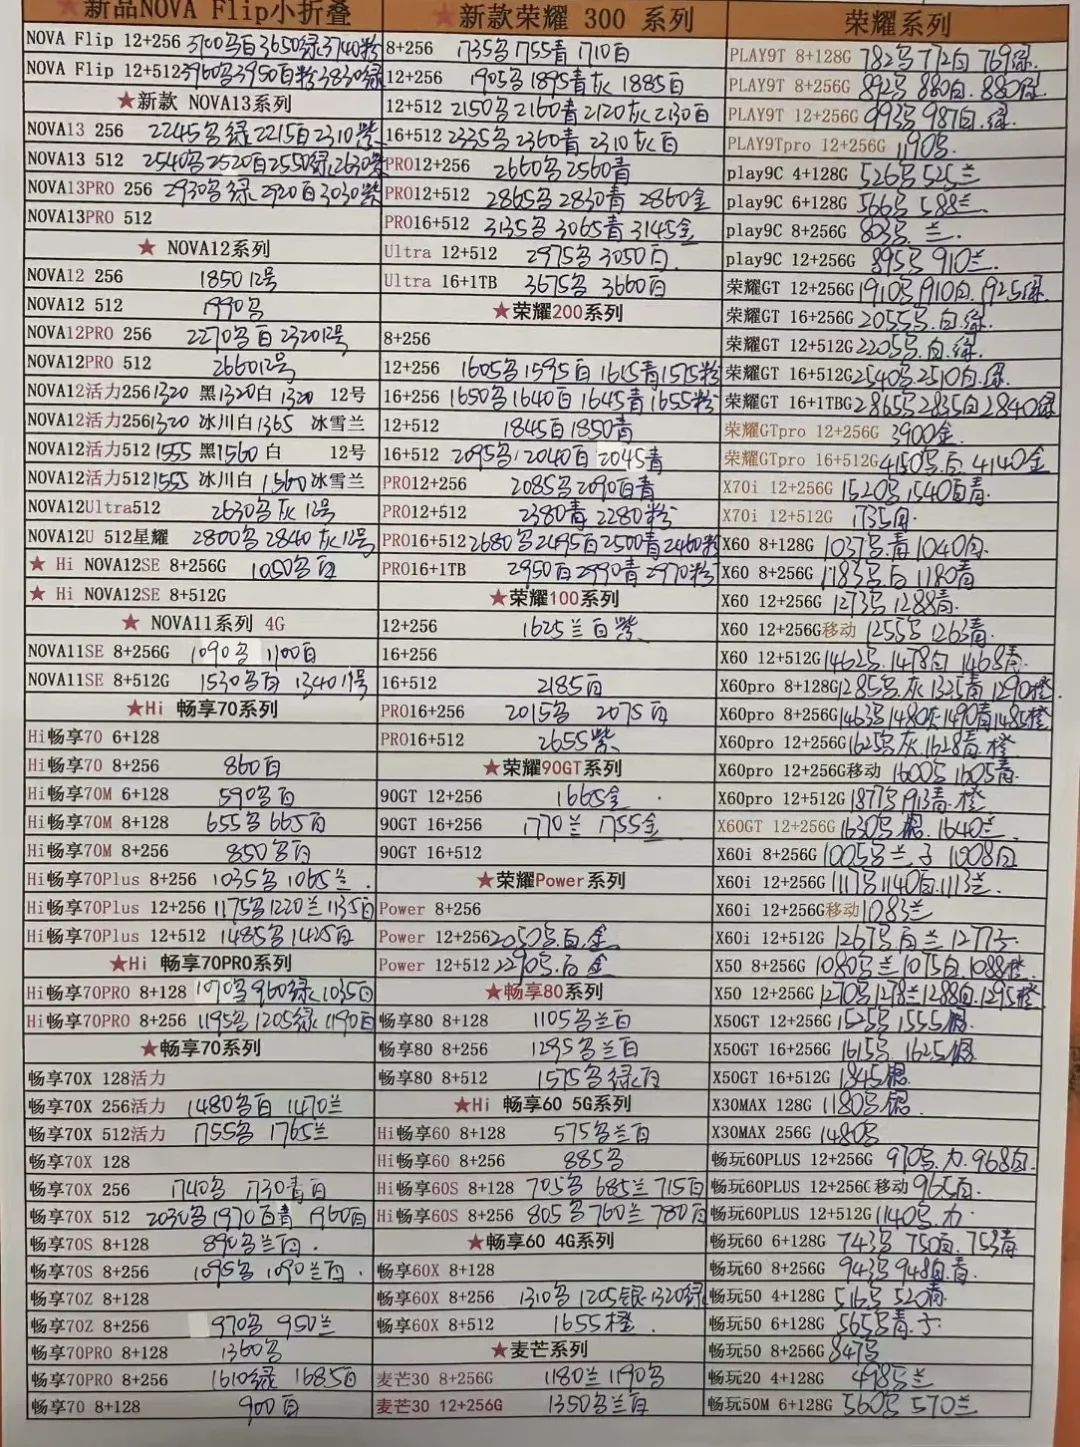 ★新品NOVA Flip小折叠
NOVA Flip 12+256 3700名百3650绿3740粉
NOVA Flip 12+512 3960名3950百粉3830绿
★新款 NOVA13系列
NOVA13 256 2245名绿2215百2310紫
NOVA13 512 2540名2520百2550绿2630紫
NOVA13PRO 256 2930名绿2920百3030紫
NOVA13PRO 512
★ NOVA12系列
NOVA12 256 1850 12号
NOVA12 512 1990名
NOVA12PRO 256 2270名百2320 12号
NOVA12PRO 512 2660 12号
NOVA12活力256 1320 黑1320白 1320 12号
NOVA12活力256 1320 冰川白1365 冰雪兰
NOVA12活力512 1555 黑1560 白 12号
NOVA12活力512 1555 冰川白 1560 冰雪兰
NOVA12Ultra512 2630名灰 12号
NOVA12U 512星耀 2800名2840灰12号
★ Hi NOVA12SE 8+256G 1050名百
★ Hi NOVA12SE 8+512G
★ NOVA11系列 4G
NOVA11SE 8+256G 1090名 1100百
NOVA11SE 8+512G 1530名百 1340 11号
★Hi 畅享70系列
Hi畅享70 6+128
Hi畅享70 8+256 860百
Hi畅享70M 6+128 590名百
Hi畅享70M 8+128 655名665百
Hi畅享70M 8+256 850名百
Hi畅享70Plus 8+256 1035名1065兰
Hi畅享70Plus 12+256 1175名1220兰1135百
Hi畅享70Plus 12+512 1485名1425百
★Hi 畅享70PRO系列
Hi畅享70PRO 8+128 1070名960绿1035百
Hi畅享70PRO 8+256 1195名1205绿1190百
★畅享70系列
畅享70X 128活力
畅享70X 256活力 1480名百 1470兰
畅享70X 512活力 1755名 1765兰
畅享70X 128
畅享70X 256 1740名 1730青百
畅享70X 512 2030名1970百青 1960百
畅享70S 8+128 890名兰百.
畅享70S 8+256 1095名 1090兰百.
畅享70Z 8+128
畅享70Z 8+256 970名 950兰
畅享70PRO 8+128 1360名
畅享70PRO 8+256 1610绿 1685百
畅享70 8+128 900百
★新款荣耀 300 系列
8+256 1735名1755青 1710百
12+256 1905名1895青灰 1885百
12+512 2150名2160青2120灰2130百
16+512 2335名2360青 2310灰百
PRO12+256 2660名2560青
PRO12+512 2865名2830青 2860金
PRO16+512 3135名 3065青3145金
Ultra 12+512 2975名3050百
Ultra 16+1TB 3675名 3660百
★荣耀200系列
8+256
12+256 1605名1595百1615青1575粉
16+256 1650名1640百1645青1655粉
12+512 1845百1850青
16+512 2095名2040百2045青
PRO12+256 2085名2090百青
PRO12+512 2380青 2280粉
PRO16+512 2680名2495百2500青2460粉
PRO16+1TB 2950百2990青2970粉
★荣耀100系列
12+256 1625兰百紫
16+256
16+512 2185百
PRO16+256 2015名 2075百
PRO16+512 2655紫
★荣耀90GT系列
90GT 12+256 1665金
90GT 16+256 1770兰 1755金
90GT 16+512
★荣耀Power系列
Power 8+256
Power 12+256 2050名.百.金
Power 12+512 2290名.百 金
★畅享80系列
畅享80 8+128 1105名兰百
畅享80 8+256 1295名兰百
畅享80 8+512 1575名绿百
★Hi 畅享60 5G系列
Hi畅享60 8+128 575名兰百
Hi畅享60 8+256 885名
Hi畅享60S 8+128 705名685兰715百
Hi畅享60S 8+256 805名760兰780百
★畅享60 4G系列
畅享60X 8+128
畅享60X 8+256 1310名1205银1320绿
畅享60X 8+512 1655橙
★麦芒系列
麦芒30 8+256G 1180兰1190名
麦芒30 12+256G 1350名兰百
荣耀系列
PLAY9T 8+128G 782名772白769绿
PLAY9T 8+256G 892名880白.880绿
PLAY9T 12+256G 993名987白.绿
PLAY9Tpro 12+256G 1190名
play9C 4+128G 526名525兰
play9C 6+128G 566名588兰
play9C 8+256G 803名.兰.
play9C 12+256G 895名910兰.
荣耀GT 12+256G 1910名1910白.1925绿
荣耀GT 16+256G 2055名.白.绿.
荣耀GT 12+512G 2205名.白.绿.
荣耀GT 16+512G 2540名2510白.绿.
荣耀GT 16+1TBG 2865名2835白2840绿
荣耀GTpro 12+256G 3900金.
荣耀GTpro 16+512G 4150名.白.4140金
X70i 12+256G 1520名1540白青.
X70i 12+512G 1735白.
X60 8+128G 1037名.青1040白.
X60 8+256G 1183名.白 1180青
X60 12+256G 1273名1288青.
X60 12+256G移动 1255名 1263青.
X60 12+512G 1462名.1478白 1468青.
X60pro 8+128G 1285名.灰1325青1290橙
X60pro 8+256G 1463名1480灰1490青1485橙
X60pro 12+256G 1625名灰1628青.橙
X60pro 12+256G移动 1600名1605青.
X60pro 12+512G 1877名1913青.橙
X60GT 12+256G 1630名银.1640兰
X60i 8+256G 1005名兰.子 1008白
X60i 12+256G 1117名1140白.1113兰.
X60i 12+256G移动 1083兰
X60i 12+512G 1267名白兰1277子.
X50 8+256G 1080名兰1075白.1088橙
X50 12+256G 1270名1278兰1288白.1295橙
X50GT 12+256G 1525名1555银.
X50GT 16+256G 1615名.1625银
X50GT 16+512G 1845银
X30MAX 128G 1180名银.
X30MAX 256G 1480名
畅玩60PLUS 12+256G 970名.力.968白.
畅玩60PLUS 12+256G移动 965白.
畅玩60PLUS 12+512G 1140名.力.
畅玩60 6+128G 743名 750白.753青
畅玩60 8+256G 943名948白.青.
畅玩50 4+128G 516名 520青
畅玩50 6+128G 565名青.子.
畅玩50 8+256G 847名
畅玩20 4+128G 498名兰
畅玩50M 6+128G 560名570兰